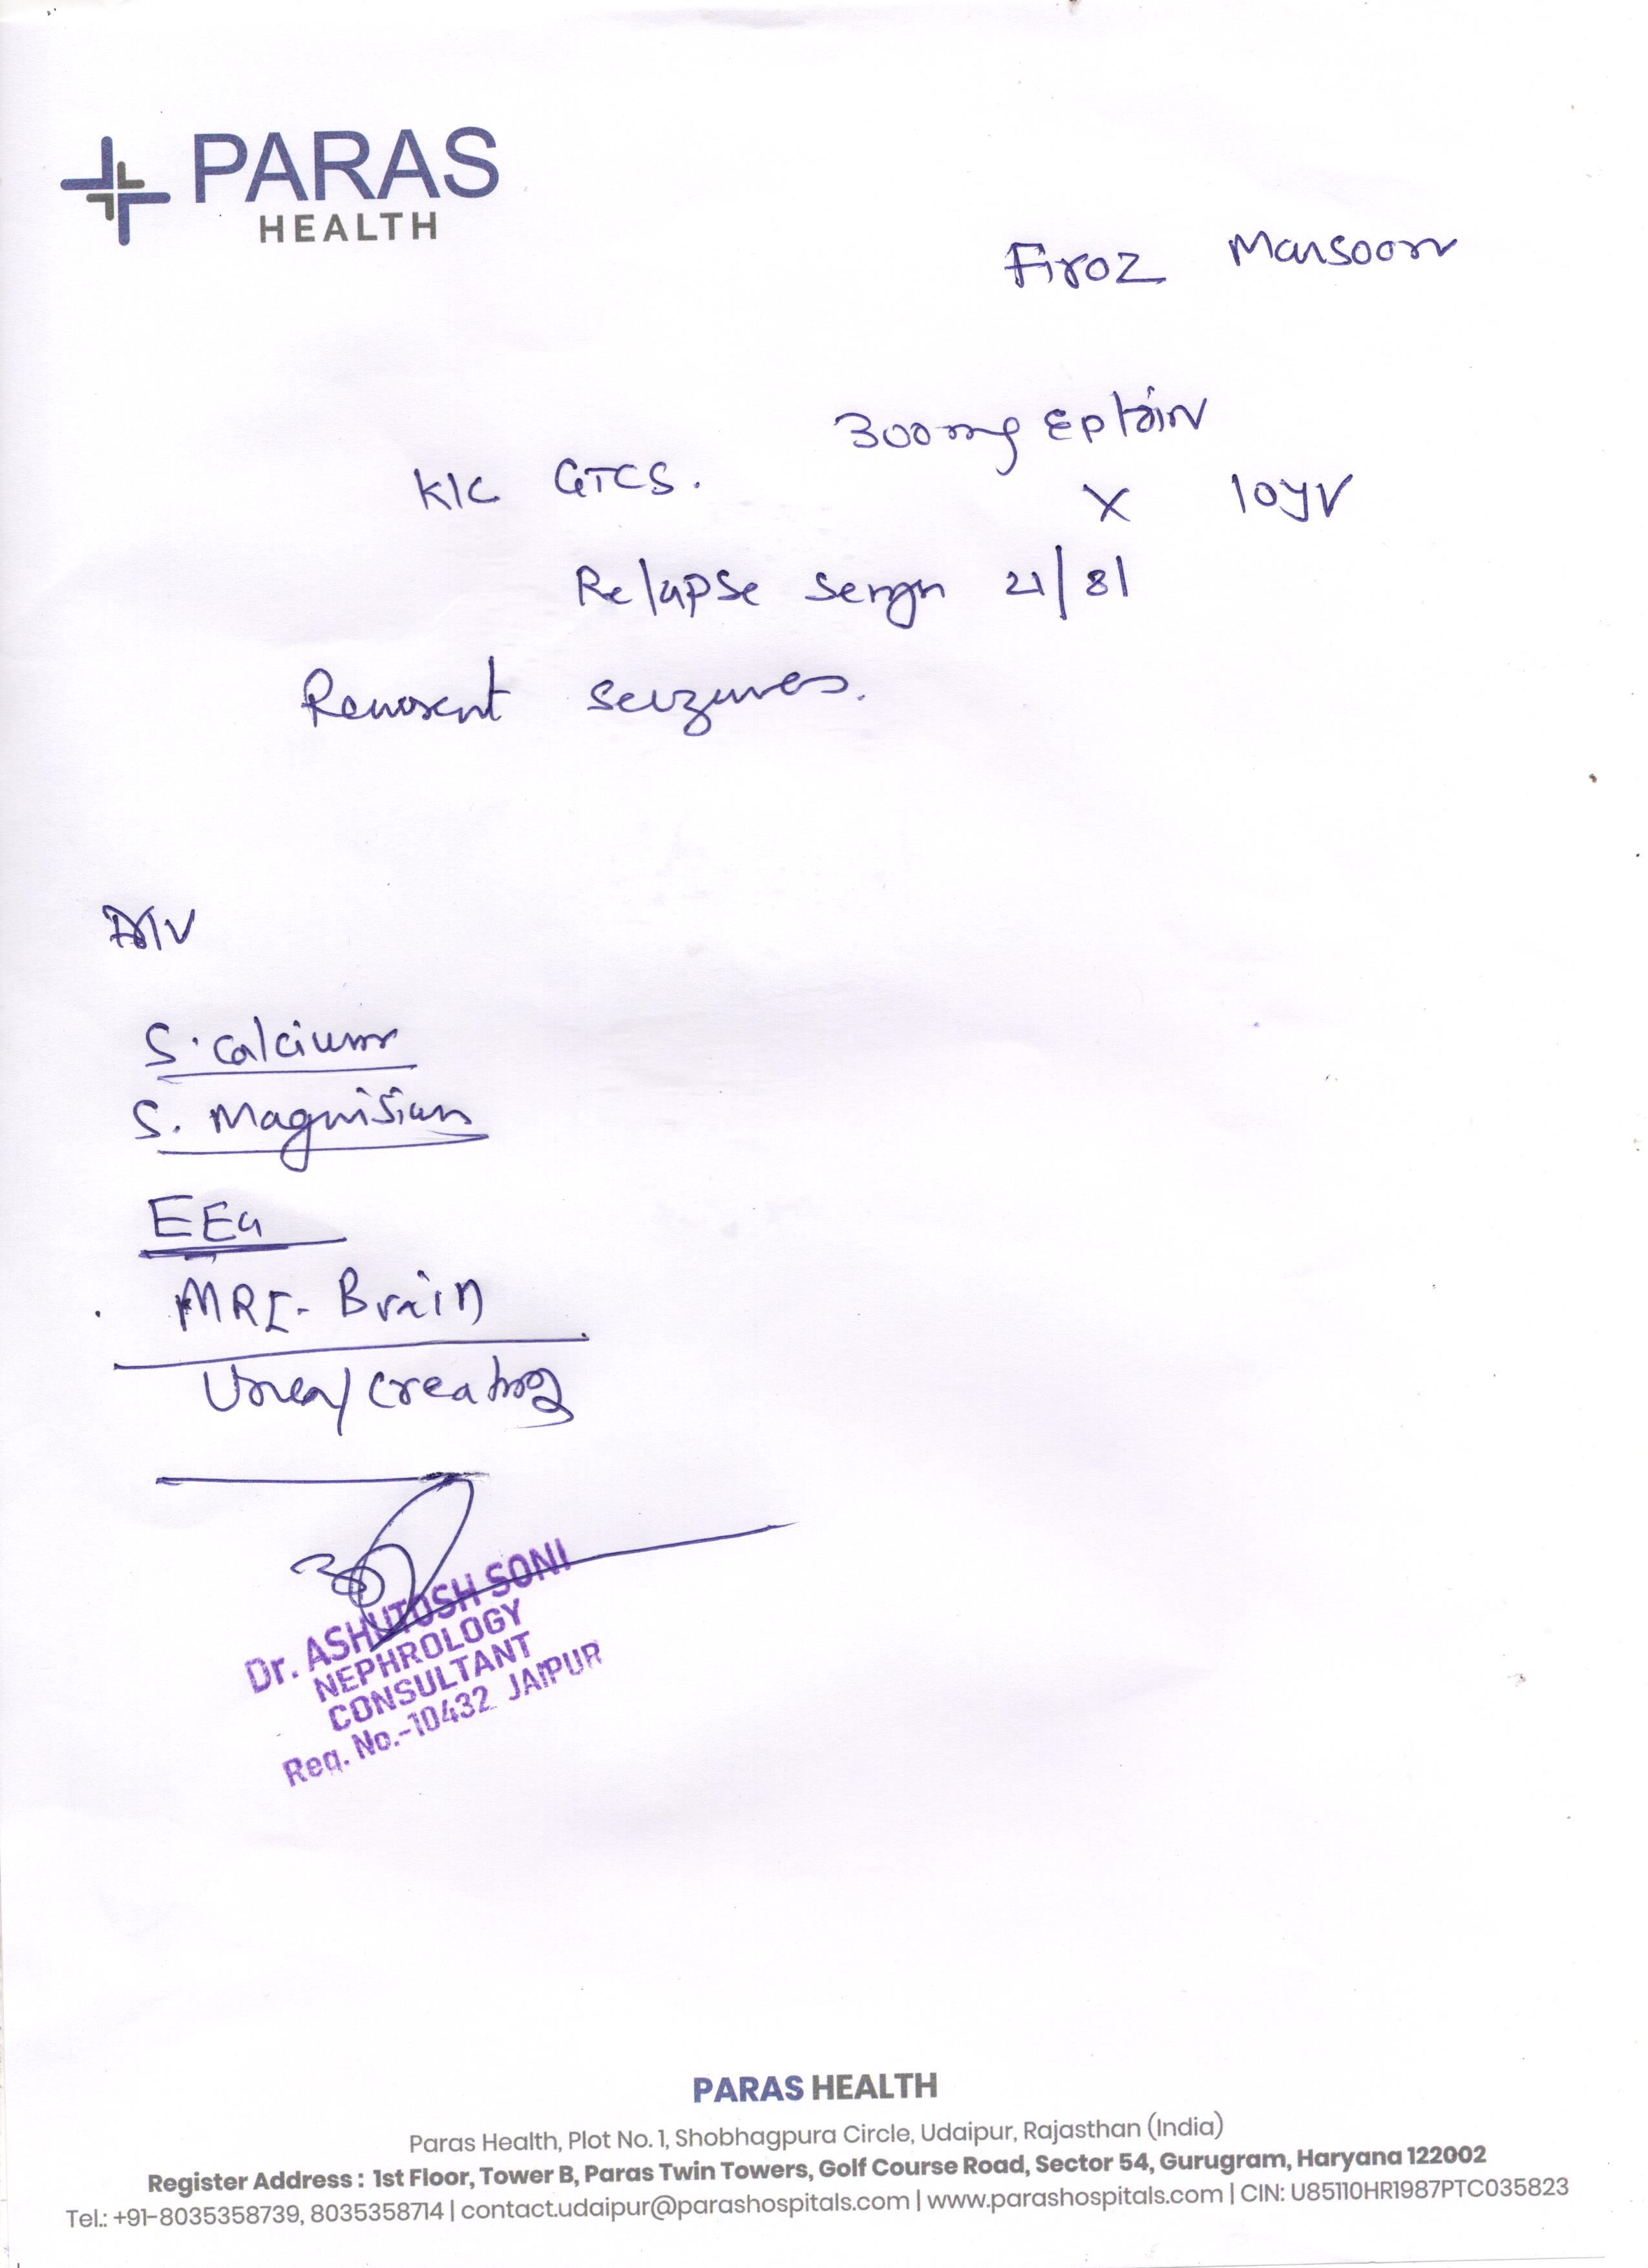 PARAS
HEALTH
Firoz Mansoori
300mg Eptoin
K/C GTCS.
X 10yr
Relapse 21/8/
Recurrent seizures.
Adv
S. Calcium
S. Magnisium
EEG
MRI - Brain
Urea/creatinine
Dr. ASHUTOSH SONI
NEPHROLOGY
CONSULTANT
Reg. No.-10432 JAIPUR
PARAS HEALTH
Paras Health, Plot No. 1, Shobhagpura Circle, Udaipur, Rajasthan (India)
Register Address : 1st Floor, Tower B, Paras Twin Towers, Golf Course Road, Sector 54, Gurugram, Haryana 122002
Tel.: +91-8035358739, 8035358714 | contact.udaipur@parashospitals.com | www.parashospitals.com | CIN: U85110HR1987PTC035823